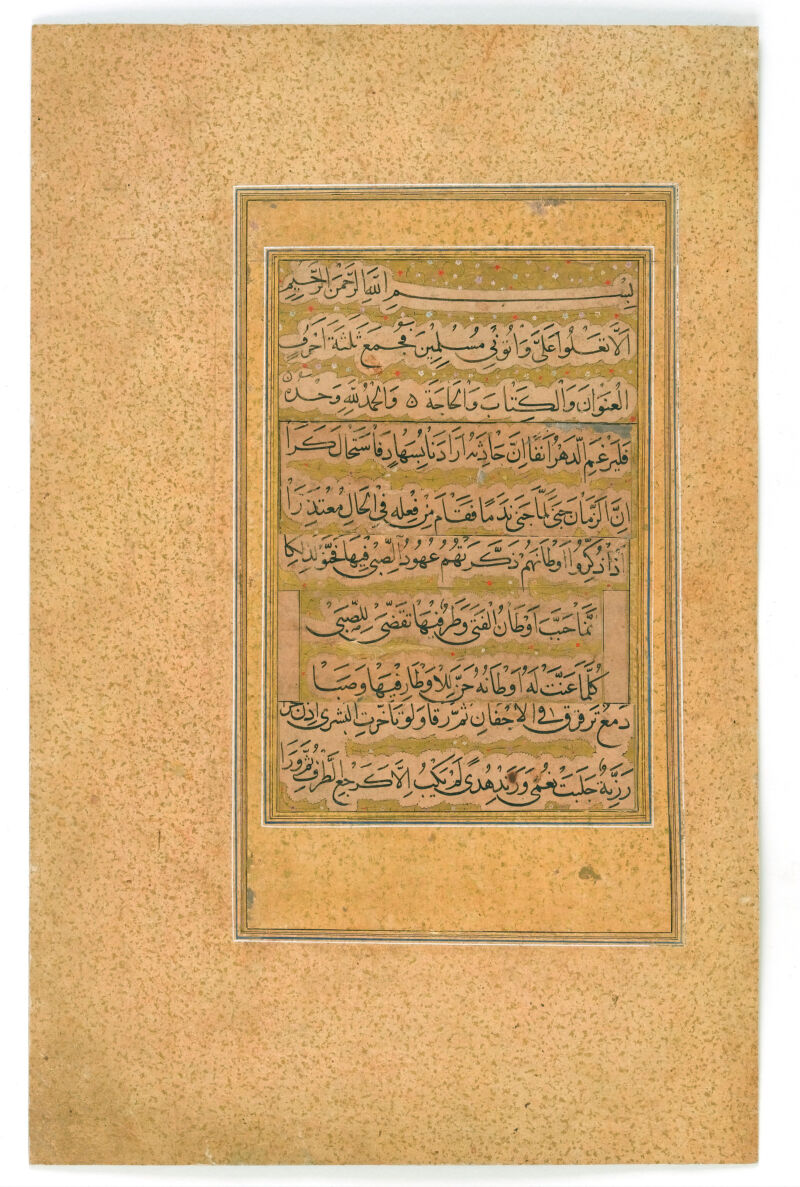 بِسْمِ اللهِ الرَّحْمٰنِ الرَّحِيمِ
اَلَّا تَعْلُوا عَلَيَّ وَاْتُونِي مُسْلِمِينَ فَجَمَعَ ثَلٰثَةَ اَحْرُفٍ
العُنْوَانَ وَالْكِتَابَ وَالْحَاجَةَ ۵ وَالْحَمْدُ لِلّٰهِ وَحْدَهُ
فليرغم الدهر انفا ان حادثه اراد بسهاد فاستحال كرا
ان الزمان جنى لما جنى ندما فقام من فعله في الحال معتذرا
اذا ذكروا اوطانهم ذكرتهم عهود الصبى فيها فحنوا لذلكا
حبب اوطان الفتى وطر فيها تقضى للصبى
كلما عنت له اوطانه حن للاوطار فيها وصبا
دمع ترقرق في الاجفان ثم رقا ولو تاخرت البشرى اذن
رزية جلبت نعمى هدى لم يكب الا كرجع الطرف ثم ورا